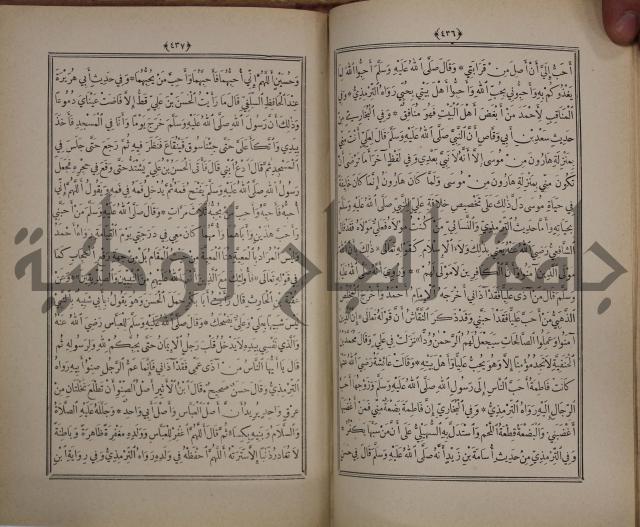 ﴿٤٣٦﴾
أَحَبُّ إِلَيَّ أَنْ أَصِلَ مِنْ قَرَابَتِي وَقَالَ صَلَّى اللهُ عَلَيْهِ وَسَلَّمَ أَحِبُّوا اللهَ لِمَا
يَغْذُوكُمْ بِهِ وَأَحِبُّونِي بِحُبِّ اللهِ وَأَحِبُّوا أَهْلَ بَيْتِي بِحُبِّي رَوَاهُ التِّرْمِذِيُّ وَفِي
الْمَنَاقِبِ لِأَحْمَدَ مَنْ أَبْغَضَ أَهْلَ الْبَيْتِ فَهُوَ مُنَافِقٌ وَفِي الْبُخَارِيِّ مِنْ
حَدِيثِ سَعْدِ بْنِ أَبِي وَقَّاصٍ أَنَّ النَّبِيَّ صَلَّى اللهُ عَلَيْهِ وَسَلَّمَ قَالَ لِعَلِيٍّ أَنْتَ مِنِّي
بِمَنْزِلَةِ هَارُونَ مِنْ مُوسَى إِلَّا أَنَّهُ لَا نَبِيَّ بَعْدِي وَفِي لَفْظٍ آخَرَ أَمَا تَرْضَى أَنْ
تَكُونَ مِنِّي بِمَنْزِلَةِ هَارُونَ مِنْ مُوسَى وَلَمَّا كَانَ هَارُونُ إِنَّمَا كَانَ خَلِيفَةً
فِي حَيَاةِ مُوسَى دَلَّ ذَلِكَ عَلَى تَخْصِيصِ خِلَافَةِ عَلِيٍّ لِلنَّبِيِّ صَلَّى اللهُ عَلَيْهِ وَسَلَّمَ
بِحَيَاتِهِ وَأَمَّا حَدِيثُ التِّرْمِذِيِّ وَالنَّسَائِيِّ مَنْ كُنْتُ مَوْلَاهُ فَعَلِيٌّ مَوْلَاهُ فَقَدْ قَالَ
الشَّافِعِيُّ رَضِيَ اللهُ عَنْهُ يَعْنِي بِذَلِكَ وَلَاءَ الْإِسْلَامِ كَقَوْلِهِ تَعَالَى ذَلِكَ بِأَنَّ اللهَ
مَوْلَى الَّذِينَ آمَنُوا وَأَنَّ الْكَافِرِينَ لَا مَوْلَى لَهُمْ
وَسَلَّمَ قَالَ مَنْ آذَى عَلِيًّا فَقَدْ آذَانِي أَخْرَجَهُ الْإِمَامُ أَحْمَدُ
الذَّهَبِيُّ مَنْ أَحَبَّ عَلِيًّا فَقَدْ أَحَبَّنِي وَقَدْ ذَكَرَ النَّقَّاشُ أَنَّ قَوْلَهُ تَعَالَى إِنَّ الَّذِينَ
آمَنُوا وَعَمِلُوا الصَّالِحَاتِ سَيَجْعَلُ لَهُمُ الرَّحْمَنُ وُدًّا نَزَلَتْ فِي عَلِيٍّ وَقَالَ مُحَمَّدُ بْنُ
الْحَنَفِيَّةِ لَا تَجِدُ مُؤْمِنًا إِلَّا وَهُوَ يُحِبُّ عَلِيًّا وَأَهْلَ بَيْتِهِ وَقَالَتْ عَائِشَةُ رَضِيَ اللهُ عَنْهَا
كَانَتْ فَاطِمَةُ أَحَبَّ النَّاسِ إِلَى رَسُولِ اللهِ صَلَّى اللهُ عَلَيْهِ وَسَلَّمَ وَزَوْجُهَا أَحَبَّ
الرِّجَالِ إِلَيْهِ رَوَاهُ التِّرْمِذِيُّ وَفِي الْبُخَارِيِّ إِنَّ فَاطِمَةَ بَضْعَةٌ مِنِّي فَمَنْ أَغْضَبَهَا
أَغْضَبَنِي وَالْبَضْعَةُ قِطْعَةُ اللَّحْمِ وَاسْتَدَلَّ بِهِ السُّهَيْلِيُّ عَلَى أَنَّ مَنْ سَبَّهَا كَفَرَ
وَفِي التِّرْمِذِيِّ مِنْ حَدِيثِ أُسَامَةَ بْنِ زَيْدٍ أَنَّهُ صَلَّى اللهُ عَلَيْهِ وَسَلَّمَ قَالَ فِي حَسَنٍ
﴿٤٣٧﴾
وَحُسَيْنٍ اللَّهُمَّ إِنِّي أُحِبُّهُمَا فَأَحِبَّهُمَا وَأَحِبَّ مَنْ يُحِبُّهُمَا وَفِي حَدِيثِ أَبِي هُرَيْرَةَ
عِنْدَ الْحَافِظِ السِّلَفِيِّ قَالَ مَا رَأَيْتُ الْحَسَنَ بْنَ عَلِيٍّ قَطُّ إِلَّا فَاضَتْ عَيْنَايَ دُمُوعًا
وَذَلِكَ أَنَّ رَسُولَ اللهِ صَلَّى اللهُ عَلَيْهِ وَسَلَّمَ خَرَجَ يَوْمًا وَأَنَا فِي الْمَسْجِدِ فَأَخَذَ
بِيَدِي وَاتَّكَأَ عَلَيَّ حَتَّى جِئْنَا سُوقَ قَيْنُقَاعَ فَنَظَرَ فِيهِ ثُمَّ رَجَعَ حَتَّى جَلَسَ فِي
الْمَسْجِدِ ثُمَّ قَالَ ادْعُ ابْنِي قَالَ فَأَتَى الْحَسَنُ بْنُ عَلِيٍّ يَشْتَدُّ حَتَّى وَقَعَ فِي حِجْرِهِ فَجَعَلَ
رَسُولُ اللهِ صَلَّى اللهُ عَلَيْهِ وَسَلَّمَ يَفْتَحُ فَمَهُ ثُمَّ يُدْخِلُ فَمَهُ فِي فَمِهِ وَيَقُولُ اللَّهُمَّ إِنِّي
أُحِبُّهُ فَأَحِبَّهُ وَأَحِبَّ مَنْ يُحِبُّهُ ثَلَاثَ مَرَّاتٍ وَقَالَ صَلَّى اللهُ عَلَيْهِ وَسَلَّمَ مَنْ أَحَبَّنِي
وَأَحَبَّ هَذَيْنِ وَأَبَاهُمَا وَأُمَّهُمَا كَانَ مَعِي فِي دَرَجَتِي يَوْمَ الْقِيَامَةِ رَوَاهُ أَحْمَدُ
لَيْسَ شَبِيهًا بِعَلِيٍّ وَعَلِيٌّ يَضْحَكُ وَقَالَ صَلَّى اللهُ عَلَيْهِ وَسَلَّمَ لِلْعَبَّاسِ رَضِيَ اللهُ عَنْهُ
وَالَّذِي نَفْسِي بِيَدِهِ لَا يَدْخُلُ قَلْبَ رَجُلٍ الْإِيمَانُ حَتَّى يُحِبَّكُمْ لِلهِ وَلِرَسُولِهِ ثُمَّ
قَالَ يَا أَيُّهَا النَّاسُ مَنْ آذَى عَمِّي فَقَدْ آذَانِي فَإِنَّمَا عَمُّ الرَّجُلِ صِنْوُ أَبِيهِ رَوَاهُ
التِّرْمِذِيُّ وَقَالَ حَسَنٌ صَحِيحٌ وَقَالَ ابْنُ الْأَثِيرِ أَصْلُ الصِّنْوِ أَنْ تَطْلُعَ نَخْلَتَانِ مِنْ
عِرْقٍ وَاحِدٍ يُرِيدُ أَنَّ أَصْلَ الْعَبَّاسِ وَأَصْلَ أَبِي وَاحِدٌ وَجَلَّلَهُ عَلَيْهِ الصَّلَاةُ
وَالسَّلَامُ وَبَنِيهِ بِكِسَاءٍ ثُمَّ قَالَ اللَّهُمَّ اغْفِرْ لِلْعَبَّاسِ وَوَلَدِهِ مَغْفِرَةً ظَاهِرَةً وَبَاطِنَةً
لَا تُغَادِرُ ذَنْبًا إِلَّا سَتَرَتْهُ اللَّهُمَّ احْفَظْهُ فِي وَلَدِهِ رَوَاهُ التِّرْمِذِيُّ وَفِي رِوَايَةِ ابْنِ